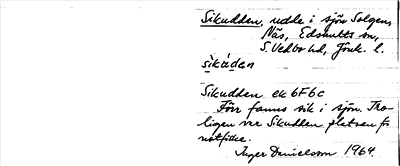 Sikudden, udde i sjön Solgen,
Näs, Edshults sn,
S. Vedbo hd, Jönk. l.
sìkúden
Sikudden ek 6F6c
Förr fanns sik i sjön. Tro-
ligen var Sikudden platsen för
notfiske.
Inger Danielsson 1964